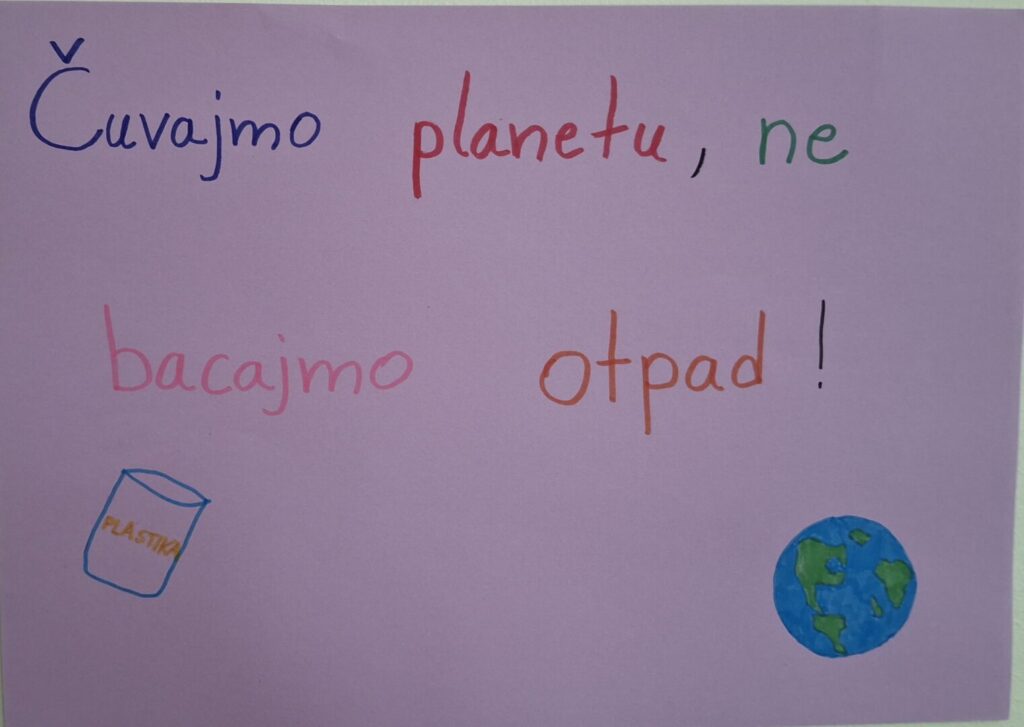 Čuvajmo planetu, ne
bacajmo otpad!
PLASTIKA